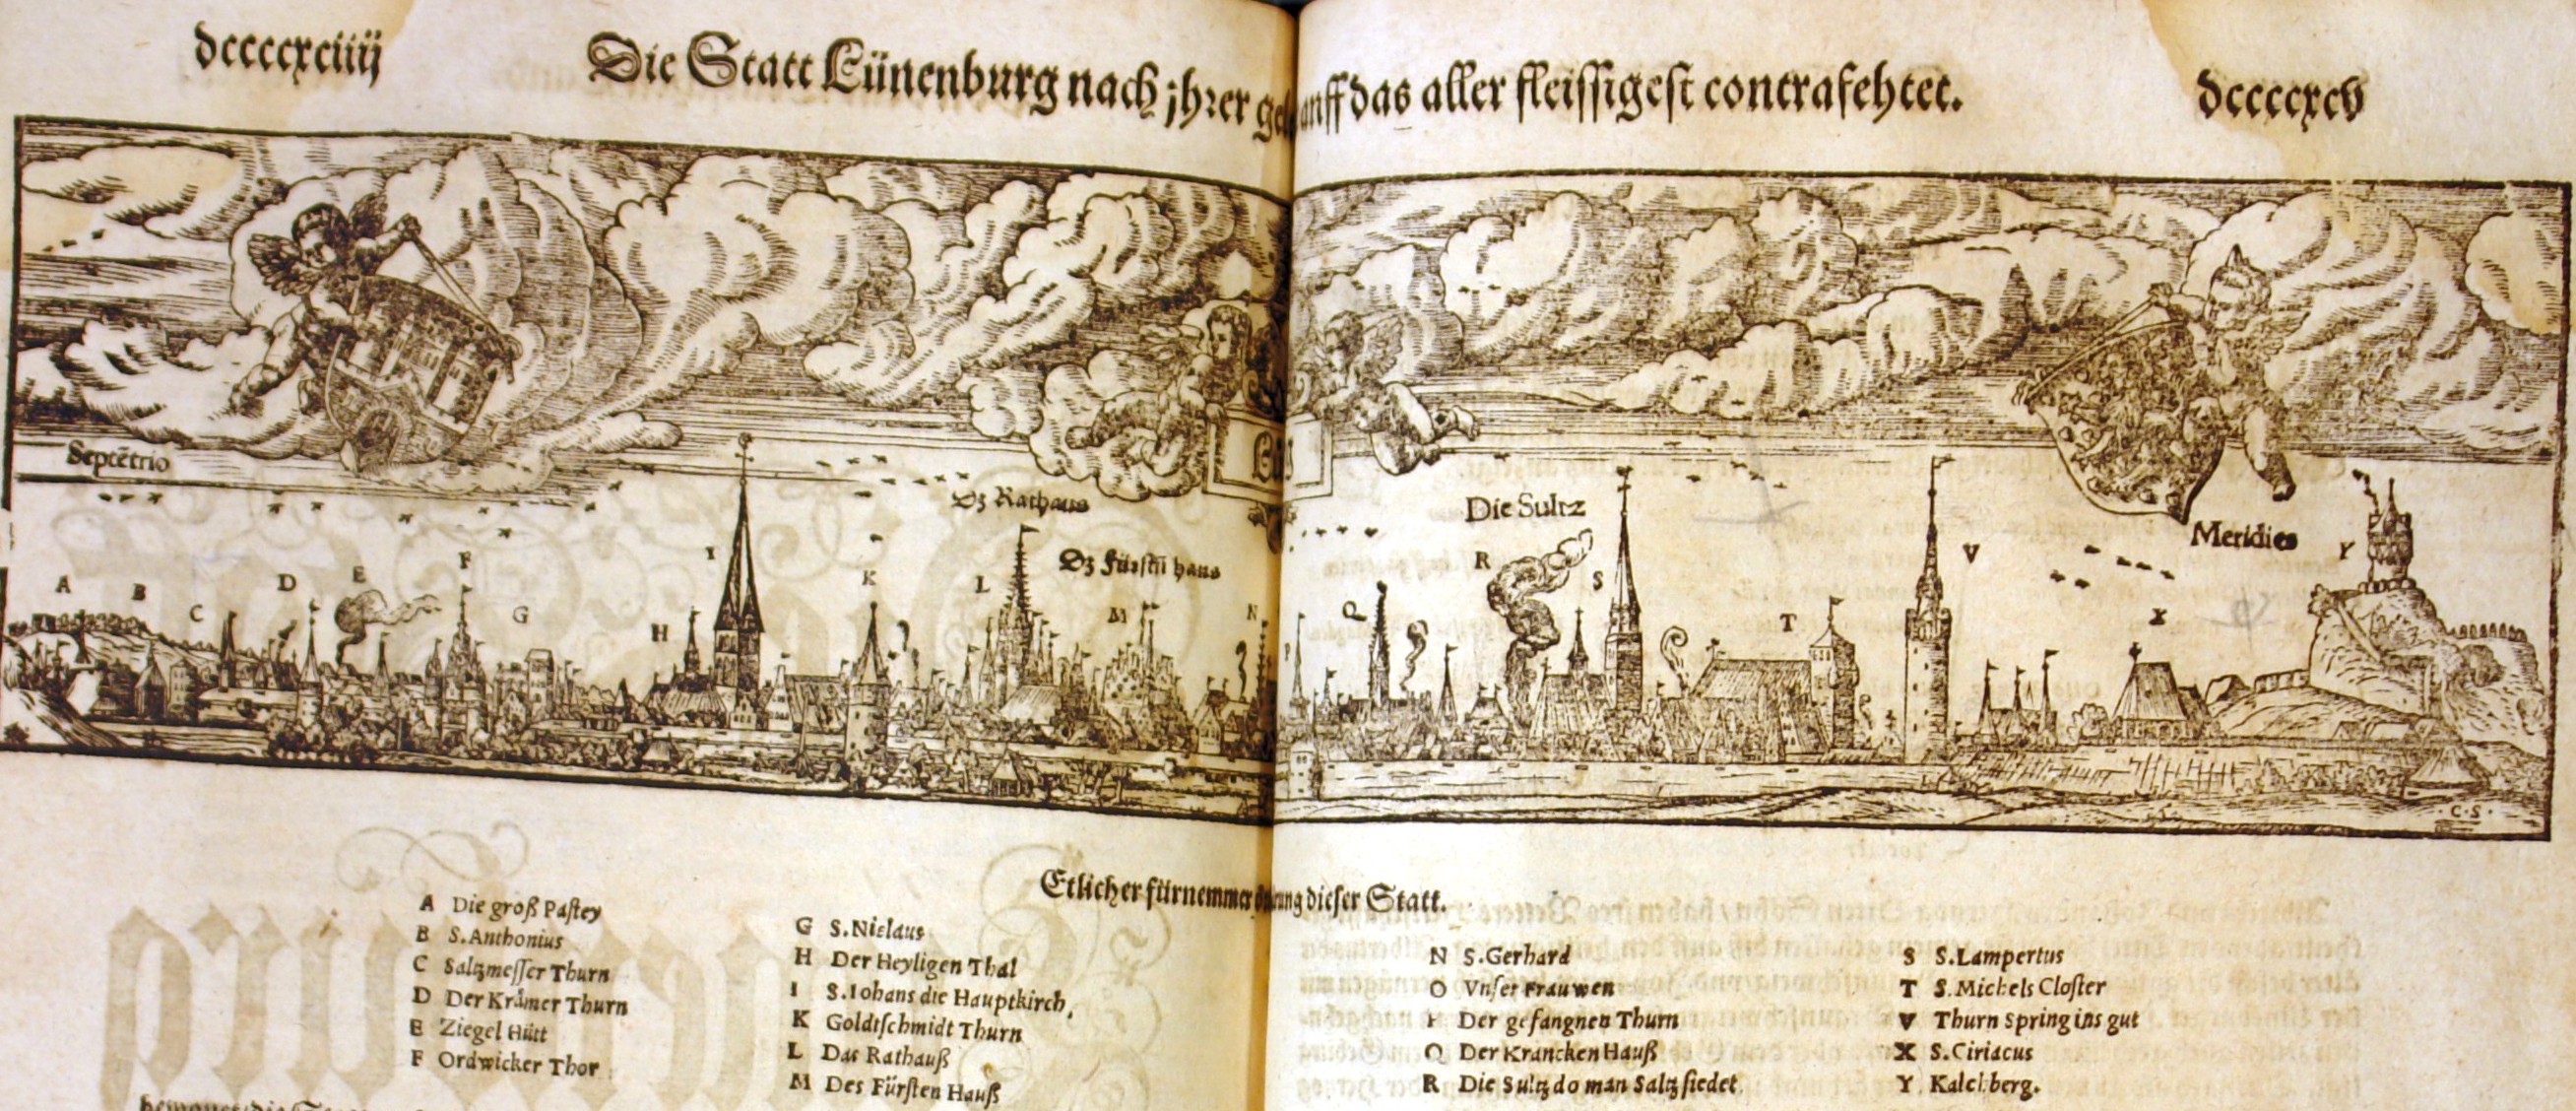 dccccxciiij
Die Statt Lünenburg nach jhrer auff das aller fleissigest contrafehtet.
dccccxcv
Septētrio
Dz Rathaus
Dz Fürstn̄ haus
Die Sultz
Meridies
A
B
C
D
E
F
G
H
I
K
L
M
N
P
R
S
T
V
X
Y
·C·S·
Etlicher fürnemmer dieser Statt.
A Die groß Pastey
B S. Anthonius
C Saltzmesser Thurn
D Der Krämer Thurn
E Ziegel Hütt
F Ordwicker Thor
G S. Niclaus
H Der Heyligen Thal
I S. Iohans die Hauptkirch,
K Goldtschmidt Thurn
L Das Rathauß
M Des Fürsten Hauß
N S. Gerhard
O Vnser Frauwen
P Der gefangnen Thurn
Q Der Krancken Hauß
R Die Sultz do man Saltz siedet
S S. Lampertus
T S. Michels Closter
V Thurn Spring ins gut
X S. Ciriacus
Y Kalckberg.